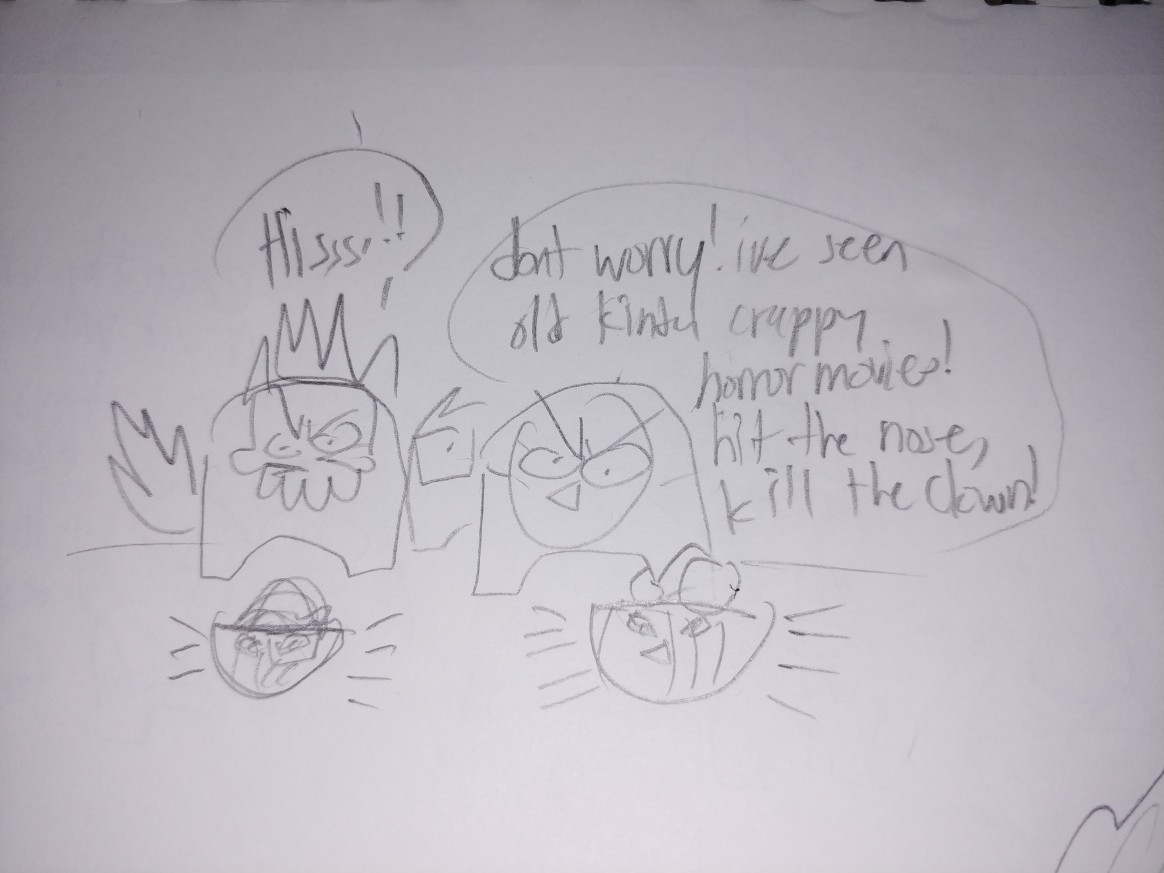 Hissss!!
dont worry! ive seen
old kinda crappy
horror movies!
hit the nose,
kill the clown!